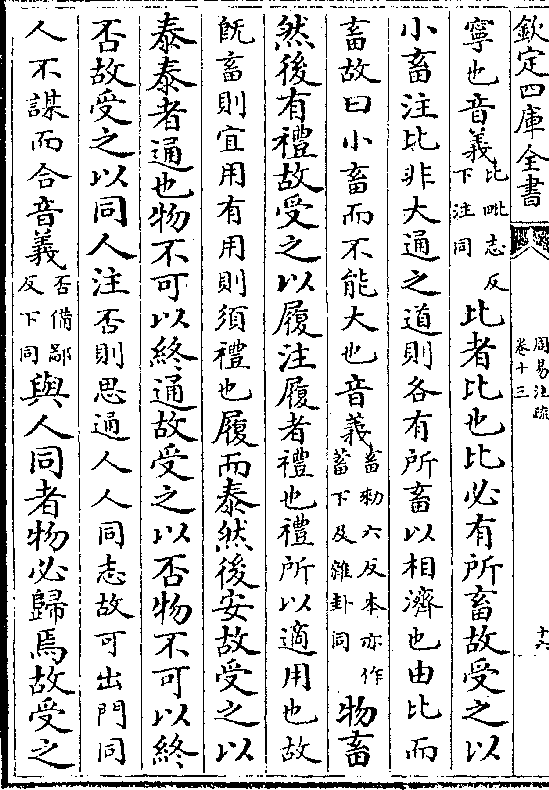 欽定四庫全書
周易注疏
卷十三
十六
寧也音義比毗志反下注同比者比也比必有所畜故受之以
小畜注比非大通之道則各有所畜以相濟也由比而
畜故曰小畜而不能大也音義畜勑六反本亦作蓄下及雜卦同物畜
然後有禮故受之以履注履者禮也禮所以適用也故
旣畜則宜用有用則須禮也履而泰然後安故受之以
泰泰者通也物不可以終通故受之以否物不可以終
否故受之以同人注否則思通人人同志故可出門同
人不謀而合音義否備鄙反下同與人同者物必歸焉故受之